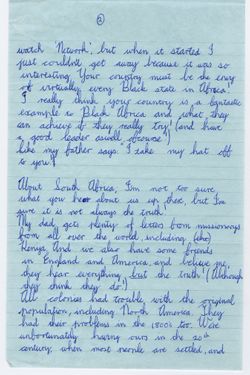 ②
watch 'Network', but when it started I
just couldn't get away because it was so
interesting. Your country must be the envy
of virtually every Black state in Africa.
I really think your country is a fantastic
example to Black Africa and what they
can achieve if they really try! (and have
a good leader aswell ofcourse!)
like my father says: "I take my hat off
to you!"
About South Africa, I'm not too sure
what you hear about us up there, but I'm
sure it is not always the truth!
My dad gets plenty of letters from missionarys
from all over the world including (the)
Kenya. And we also have some friends
in England and America, and believe me,
they hear everything, but the truth! (Although
they think they do!)
All colonies had trouble with the original
population, including North America. They
had their problems in the 1800s too. We're
unfortunately having ours in the 20th
century, when most people are settled, and